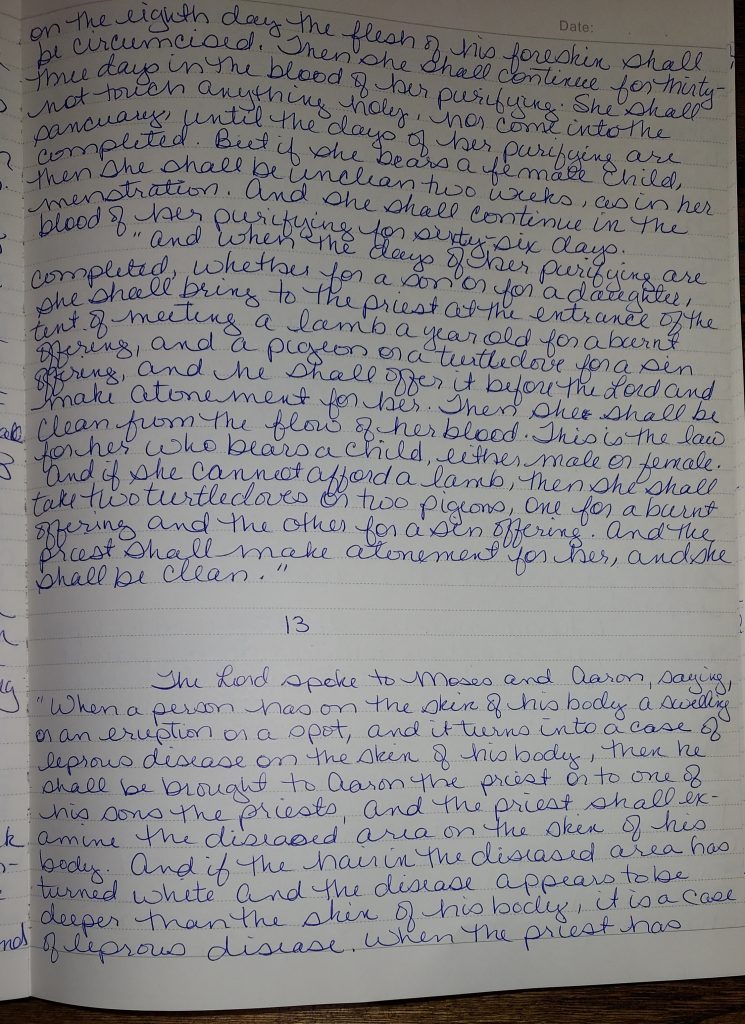 Date:
on the eighth day the flesh of his foreskin shall
be circumcised. Then she shall continue for thirty-
three days in the blood of her purifying. She shall
not touch anything holy, nor come into the
sancuary, until the days of her purifying are
completed. But if she bears a female child,
then she shall be unclean two weeks, as in her
menstration. And she shall continue in the
blood of her purifying for sixty-six days.
"and when the days of her purifying are
completed, whether for a son or for a daughter,
she shall bring to the priest at the entrance of the
tent of meeting a lamb a year old for a burnt
offering, and a pigeon or a turtledove for a sin
offering, and he shall offer it before the Lord and
make atonement for her. Then she shall be
clean from the flow of her blood. This is the law
for her who bears a child, either male or female.
And if she cannot afford a lamb, then she shall
take two turtledoves or two pigeons, one for a burnt
offering and the other for a sin offering. And the
priest shall make atonement for her, and she
shall be clean."
13
The Lord spoke to Moses and Aaron, saying,
"When a person has on the skin of his body a swelling
or an eruption or a spot, and it turns into a case of
leprous disease on the skin of his body, then he
shall be brought to Aaron the priest or to one of
his sons the priests, and the priest shall ex-
amine the diseased area on the skin of his
body. And if the hair in the diseased area has
turned white and the disease appears to be
deeper than the skin of his body, it is a case
of leprous disease. When the priest has